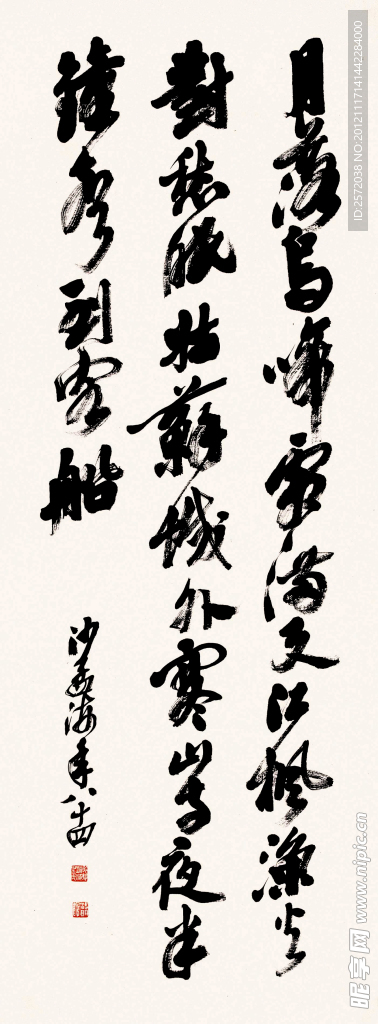 月落烏啼霜滿天江楓漁火
對愁眠姑蘇城外寒山寺夜半
鐘聲到客船
沙孟海年八十四
ID:2572038 NO:20121117141442284000
昵享网 www.nipic.cn